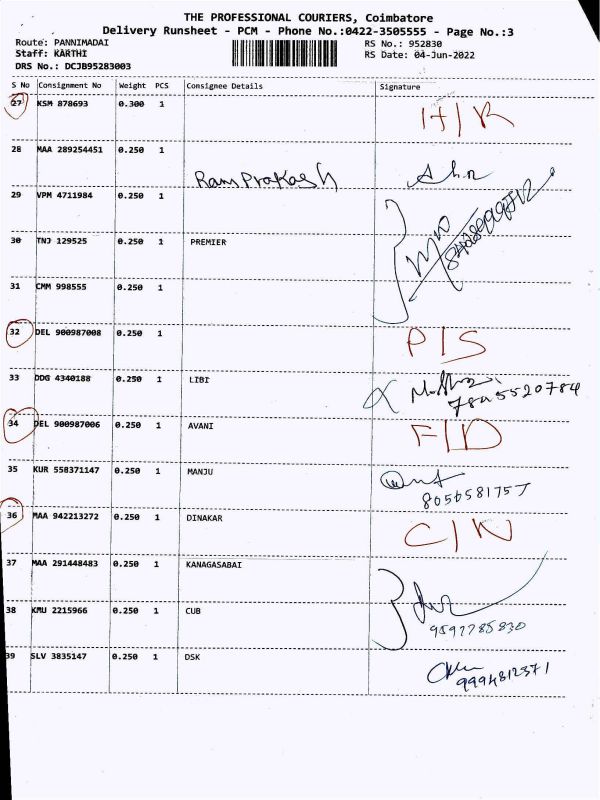 THE PROFESSIONAL COURIERS, Coimbatore
Delivery Runsheet - PCM - Phone No.:0422-3505555 - Page No.:3
Route: PANNIMADAI RS No.: 952830
Staff: KARTHI RS Date: 04-Jun-2022
DRS No.: DCJB95283003
S No Consignment No Weight PCS Consignee Details Signature
27 KSM 878693 0.300 1 H/R
28 MAA 289254451 0.250 1 Ram Prakash
29 VPM 4711984 0.250 1
30 TNJ 129525 0.250 1 PREMIER
31 CMM 998555 0.250 1
32 DEL 900987008 0.250 1 P/S
33 DDG 4340188 0.250 1 LIBI
34 DEL 900987006 0.250 1 AVANI F/D
35 KUR 558371147 0.250 1 MANJU
36 MAA 942213272 0.250 1 DINAKAR C/N
37 MAA 291448483 0.250 1 KANAGASABAI
38 KMU 2215966 0.250 1 CUB
9597785830
39 SLV 3835147 0.250 1 DSK
9994812371